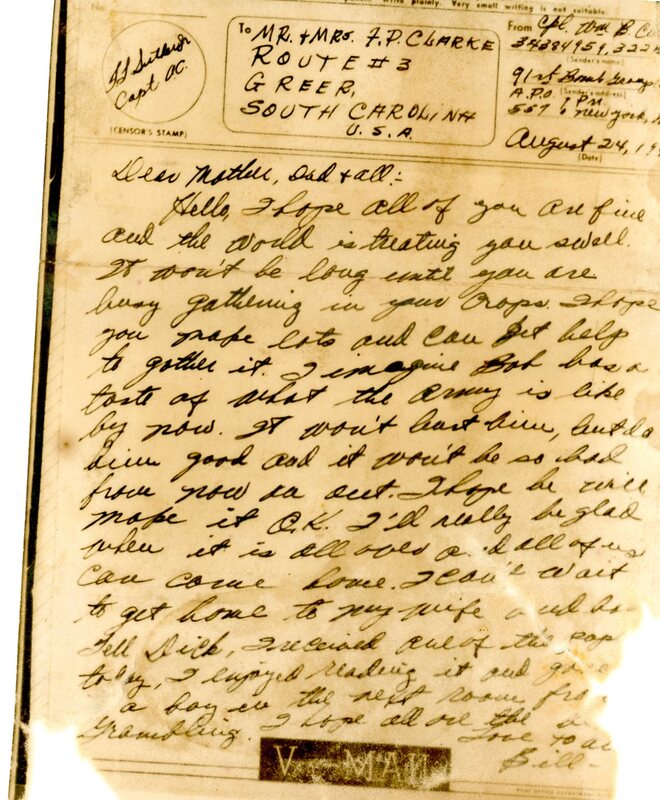 No.
plainly. Very small writing is not suitable.
Capt AC.
(CENSOR'S STAMP)
To MR. & MRS. F.P. CLARKE
ROUTE #3
GREER,
SOUTH CAROLINA
U.S.A.
From Cpl. Wm B
34384959, 322
(Sender's name)
91st Bomb Group
(Sender's address)
A.P.O.
557 % P.M. new york,
August 24, 19
(Date)
Dear Mother, Dad & all:-
Hello, I hope all of you are fine
and the world is treating you swell.
It won't be long until you are
busy gathering in your crops. I hope
you make lots and can get help
to gather it. I imagine Bob has a
taste of what the army is like
by now. It won't hurt him, but do
him good and it won't be so bad
from now on out. I hope he will
make it O.K. I'll really be glad
when it is all over a d all of us
can come home. I can't wait
to get home to my wife and
Tell Dick, I received one of the pap
today, I enjoyed reading it and
a boy in the next room fro
Grambling. I hope all are the
Love to
Bill-
V--- MAIL
POST OFFICE DEPARTMENT